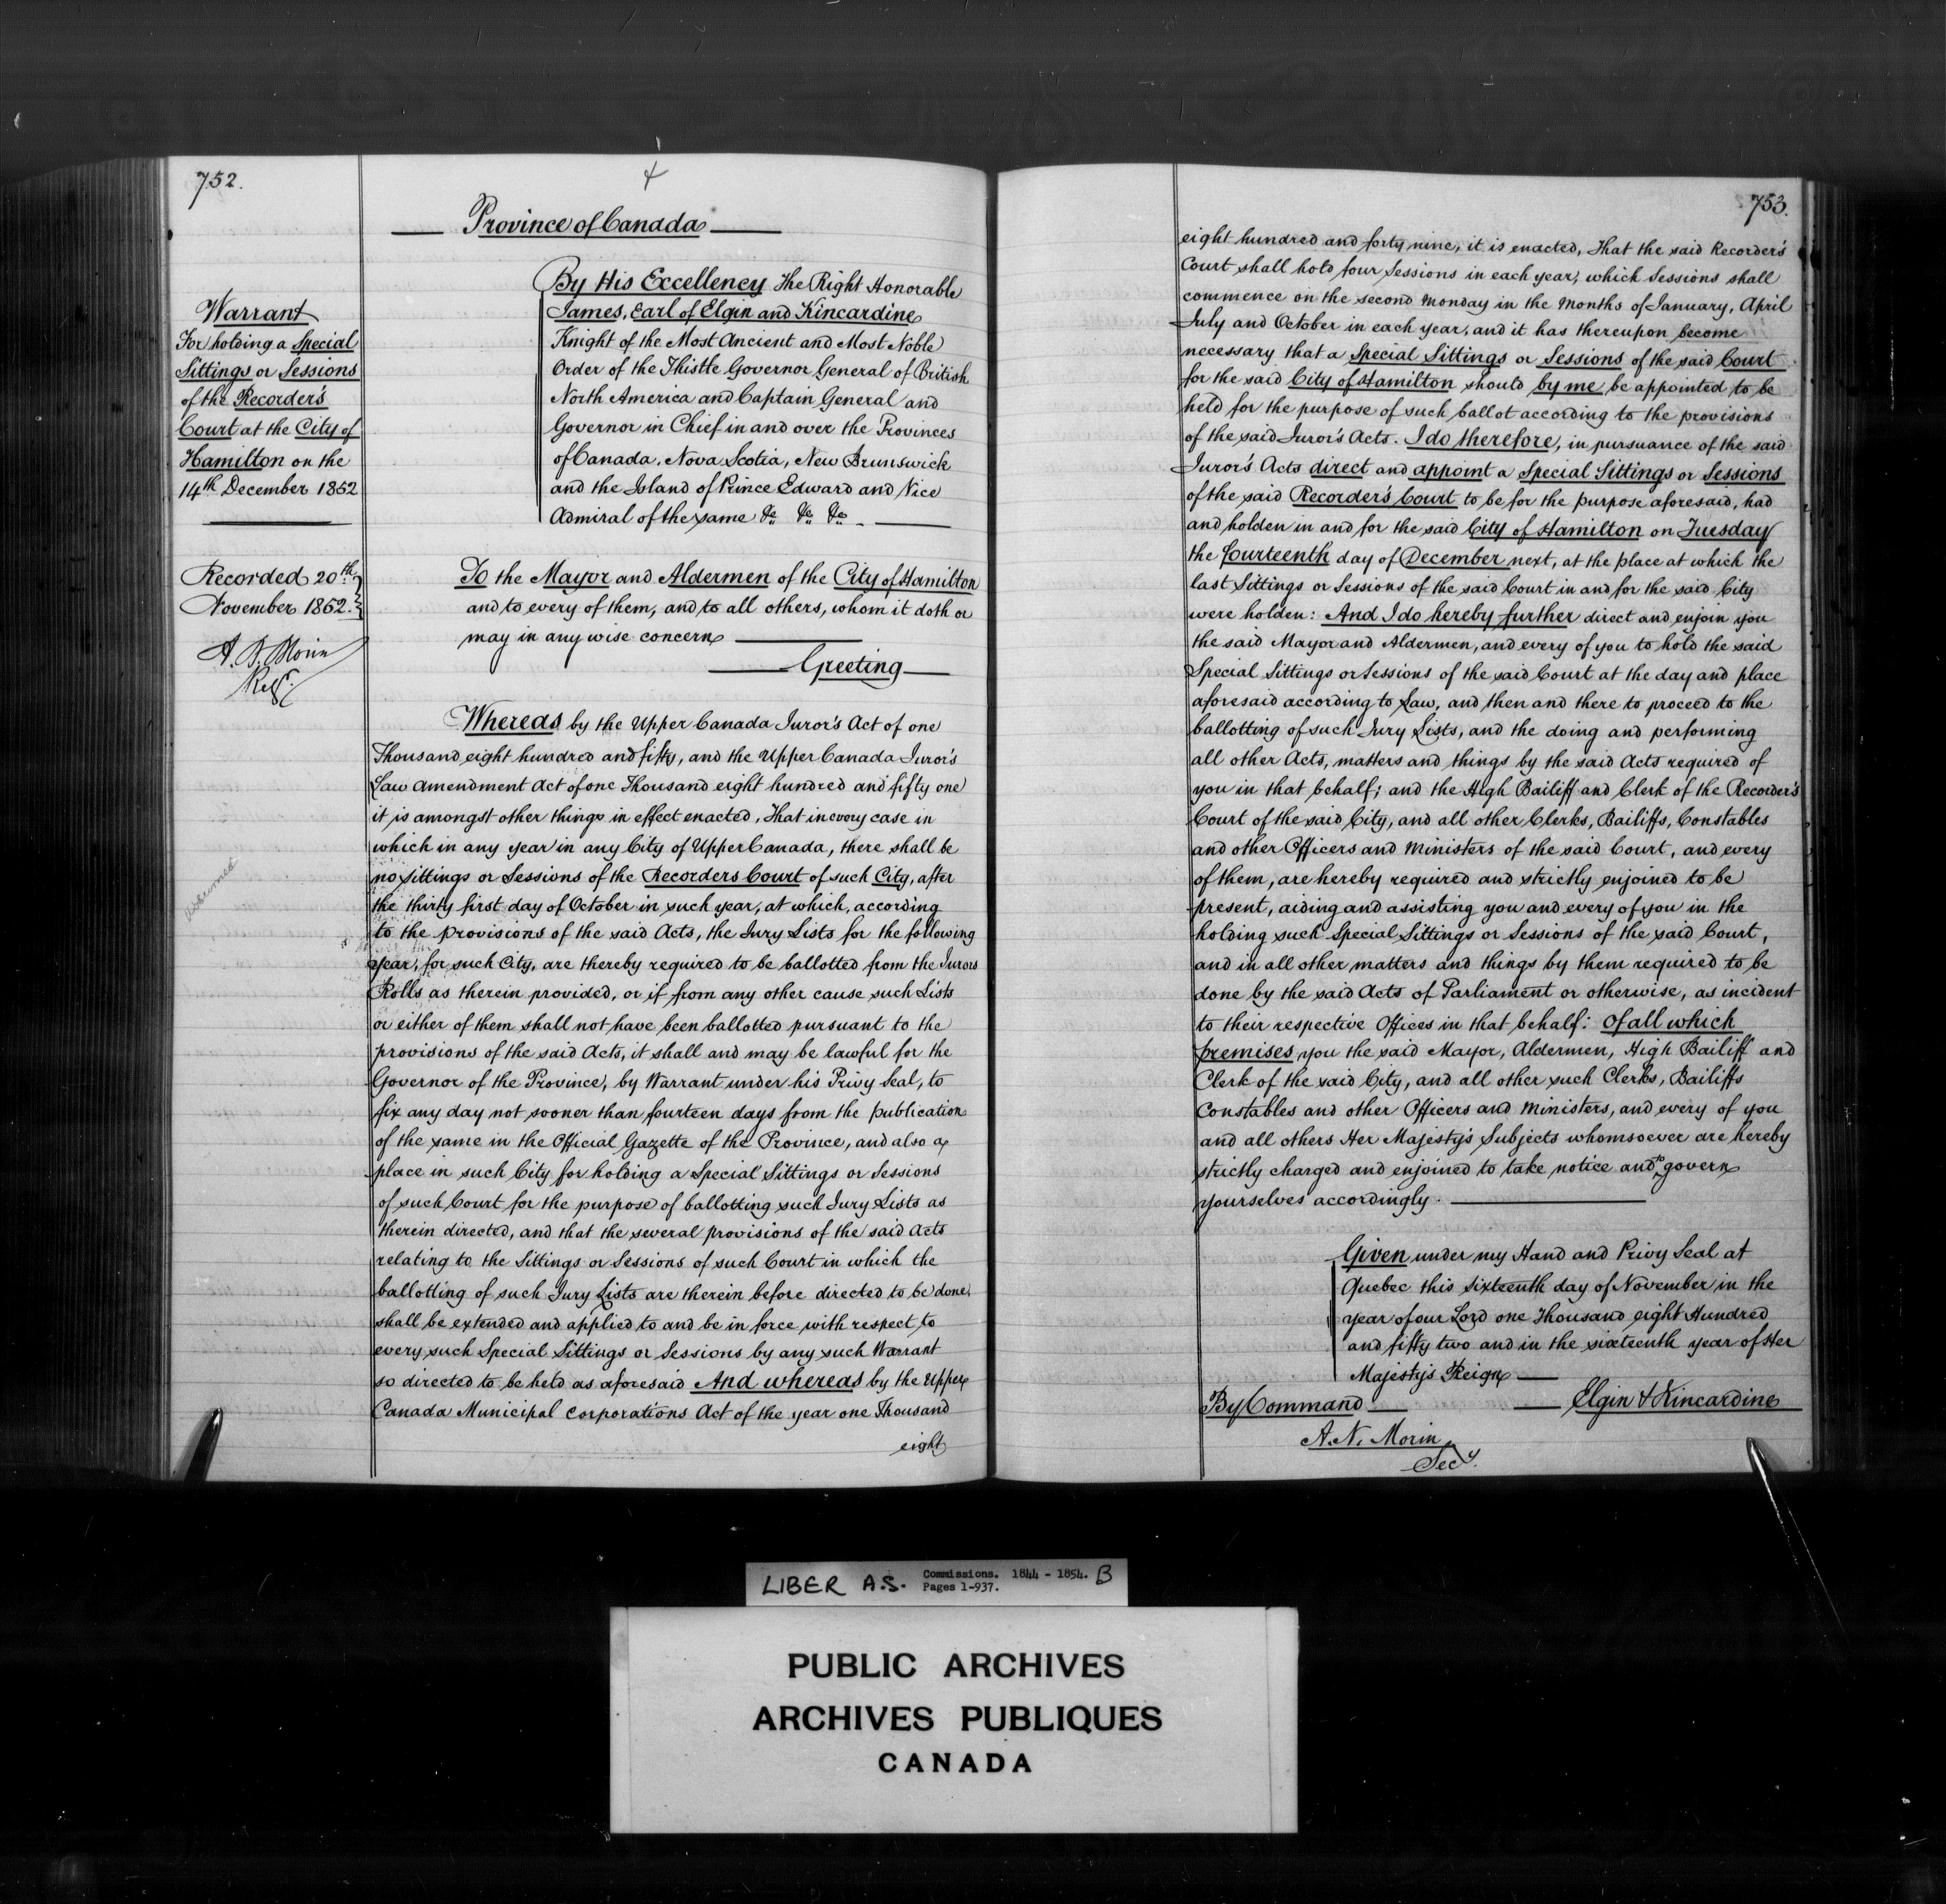 752.
Province of Canada
Warrant
For holding a Special
Sittings or Sessions
of the Recorder's
Court at the City of
Hamilton on the
14th December 1852
Recorded 20th
November 1852.
A. N. Morin
Regr.
By His Excellency The Right Honorable
James, Earl of Elgin and Kincardine
Knight of the Most Ancient and Most Noble
Order of the Thistle Governor General of British
North America and Captain General and
Governor in Chief in and over the Provinces
of Canada, Nova Scotia, New Brunswick
and the Island of Prince Edward and Vice
Admiral of the same &c &c &c
To the Mayor and Aldermen of the City of Hamilton
and to every of them, and to all others, whom it doth or
may in any wise concern
Greeting
Whereas by the Upper Canada Juror's Act of one
Thousand eight hundred and fifty, and the Upper Canada Juror's
Law Amendment Act of one Thousand eight hundred and fifty one
it is amongst other things in effect enacted, That in every case in
which in any year in any City of Upper Canada, there shall be
no sittings or Sessions of the Recorders Court of such City, after
the thirty first day of October in such year, at which, according
to the provisions of the said Acts, the Jury Lists for the following
year, for such City, are thereby required to be ballotted from the Jurors
Rolls as therein provided, or if from any other cause such Lists
or either of them shall not have been ballotted pursuant to the
provisions of the said Acts, it shall and may be lawful for the
Governor of the Province, by Warrant under his Privy Seal, to
fix any day not sooner than fourteen days from the publication
of the same in the Official Gazette of the Province, and also a
place in such City for holding a Special Sittings or Sessions
of such Court for the purpose of ballotting such Jury Lists as
therein directed, and that the several provisions of the said Acts
relating to the Sittings or Sessions of such Court in which the
ballotting of such Jury Lists are therein before directed to be done,
shall be extended and applied to and be in force with respect to
every such Special Sittings or Sessions by any such Warrant
so directed to be held as aforesaid And whereas by the Upper
Canada Municipal Corporations Act of the year one Thousand
eight
753.
eight hundred and forty nine, it is enacted, That the said Recorder's
Court shall hold four Sessions in each year, which Sessions shall
commence on the second Monday in the Months of January, April
July and October in each year, and it has thereupon become
necessary that a Special Sittings or Sessions of the said Court
for the said City of Hamilton should by me be appointed to be
held for the purpose of such ballot according to the provisions
of the said Juror's Acts. I do therefore, in pursuance of the said
Juror's Acts direct and appoint a Special Sittings or Sessions
of the said Recorder's Court to be for the purpose aforesaid, had
and holden in and for the said City of Hamilton on Tuesday
the fourteenth day of December next, at the place at which the
last Sittings or Sessions of the said Court in and for the said City
were holden: And I do hereby further direct and enjoin you
the said Mayor and Aldermen, and every of you to hold the said
Special Sittings or Sessions of the said Court at the day and place
aforesaid according to Law, and then and there to proceed to the
ballotting of such Jury Lists, and the doing and performing
all other Acts, matters and things by the said Acts required of
you in that behalf; and the High Bailiff and Clerk of the Recorder's
Court of the said City, and all other Clerks, Bailiffs, Constables
and other Officers and Ministers of the said Court, and every
of them, are hereby required and strictly enjoined to be
present, aiding and assisting you and every of you in the
holding such Special Sittings or Sessions of the said Court,
and in all other matters and things by them required to be
done by the said Acts of Parliament or otherwise, as incident
to their respective Offices in that behalf: Of all which
premises you the said Mayor, Aldermen, High Bailiff and
Clerk of the said City, and all other such Clerks, Bailiffs
Constables and other Officers and Ministers, and every of you
and all others Her Majesty's Subjects whomsoever are hereby
strictly charged and enjoined to take notice and to govern
yourselves accordingly.
Given under my Hand and Privy Seal at
Quebec this Sixteenth day of November in the
year of our Lord one Thousand eight Hundred
and fifty two and in the sixteenth year of Her
Majesty's Reign
By Command
Elgin & Kincardine
A. N. Morin
Secy.
LIBER A.S. Commissions. 1844 - 1854. B
Pages 1-937.
PUBLIC ARCHIVES
ARCHIVES PUBLIQUES
CANADA